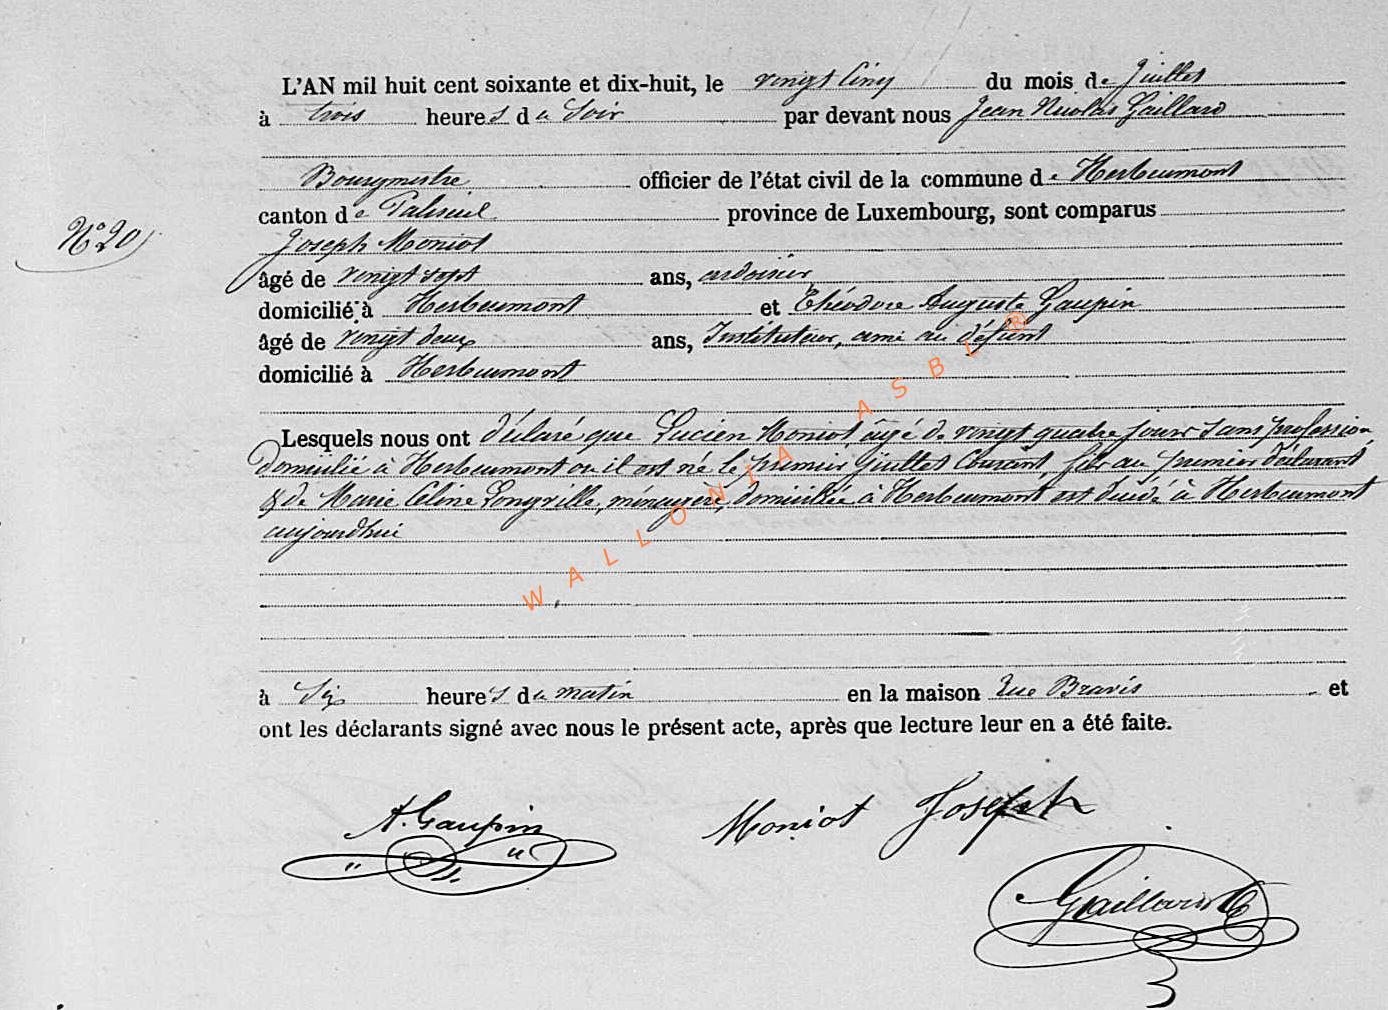 L'AN mil huit cent soixante et dix-huit, le vingt Cinq du mois de Juillet
à trois heures du Soir par devant nous Jean Nicolas Gaillard
Bourgmestre officier de l'état civil de la commune de Herbeumont
canton de Paliseul province de Luxembourg, sont comparus
N° 20
Joseph Moniot
âgé de vingt sept ans, ardoisier
domicilié à Herbeumont et Théodore Auguste Gaupin
âgé de vingt deux ans, Instituteur, ami au défunt
domicilié à Herbeumont
Lesquels nous ont déclaré que Lucien Moniot, âgé de vingt quatre jours Sans profession
domicilié à Herbeumont où il est né le premier Juillet Courant, fils au premier déclarant
& de Marie Céline Longville, ménagère, domiciliée à Herbeumont est décédé à Herbeumont
aujourdhui
à Six heures du matin en la maison rue Bravis et
ont les déclarants signé avec nous le présent acte, après que lecture leur en a été faite.
A. Gaupin Moniot Joseph
Gaillard
WALLONIA ASBL ®